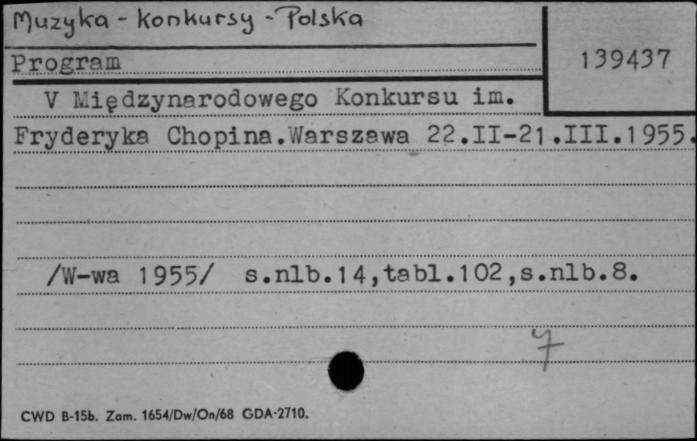 Muzyka - konkursy - Polska
Program
139437
V Międzynarodowego Konkursu im.
Fryderyka Chopina.Warszawa 22.II-21.III.1955.
/W-wa 1955/ s.nlb.14,tabl.102,s.nlb.8.
7
CWD B-15b. Zam. 1654/Dw/On/68 GDA-2710.